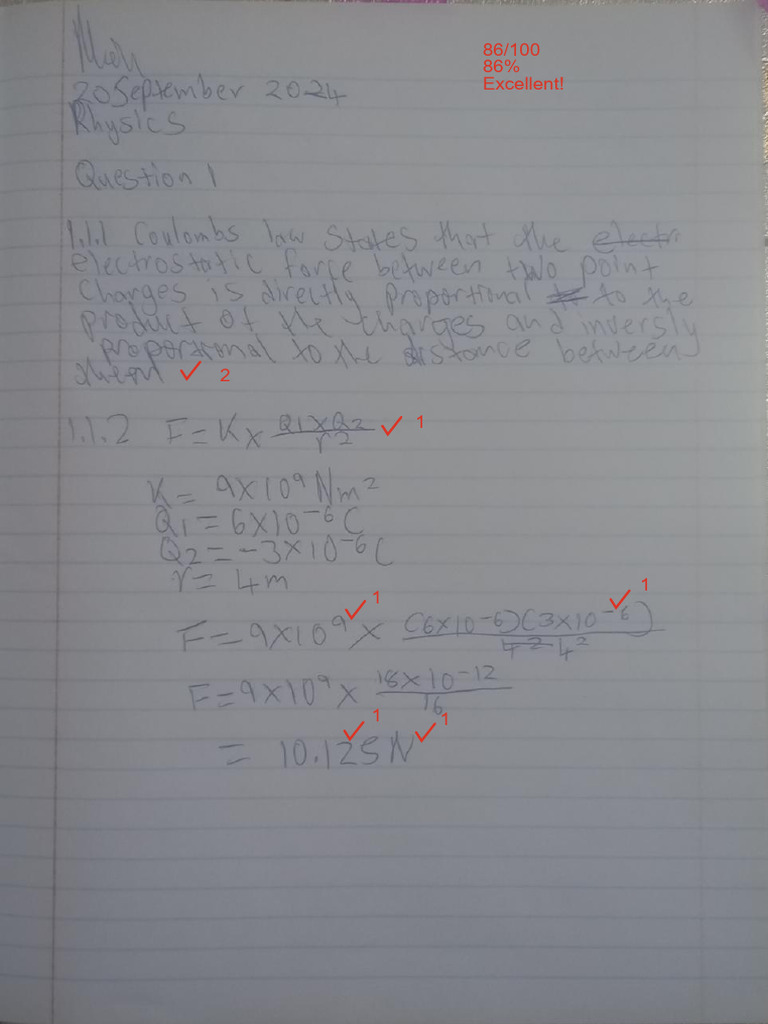 86/100
86%
Excellent!
20 September 2024
Physics
Question 1
1.1.1 Coulombs law states that the electr
electrostatic force between two point
charges is directly proportional to the
product of the charges and inversly
proportional to the distance between
them ✓ 2
1.1.2 F = K × Q1×Q2/r² ✓ 1
K = 9×10⁹ Nm²
Q1 = 6×10⁻⁶ C
Q2 = -3×10⁻⁶ C
r = 4m
F = 9×10⁹ ✓ 1 × (6×10⁻⁶)(3×10⁻⁶)/4² 4² ✓ 1
F = 9×10⁹ × 18×10⁻¹²/16
= 10.125 ✓ 1 N ✓ 1